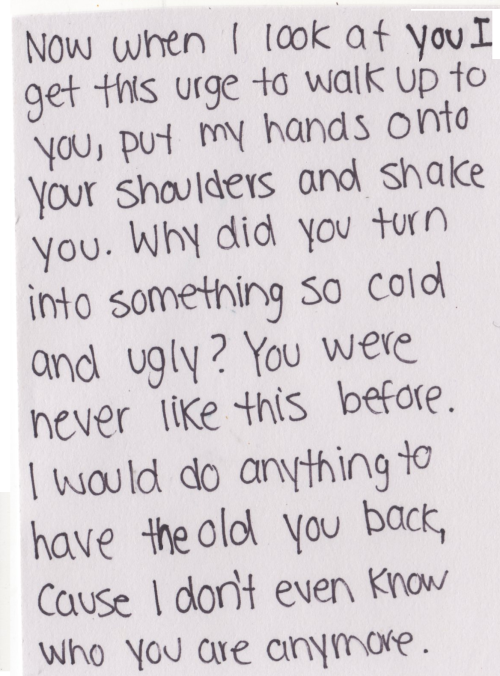 Now when I look at you I
get this urge to walk up to
you, put my hands onto
your shoulders and shake
you. Why did you turn
into something so cold
and ugly? You were
never like this before.
I would do anything to
have the old you back,
Cause I don't even know
who you are anymore.